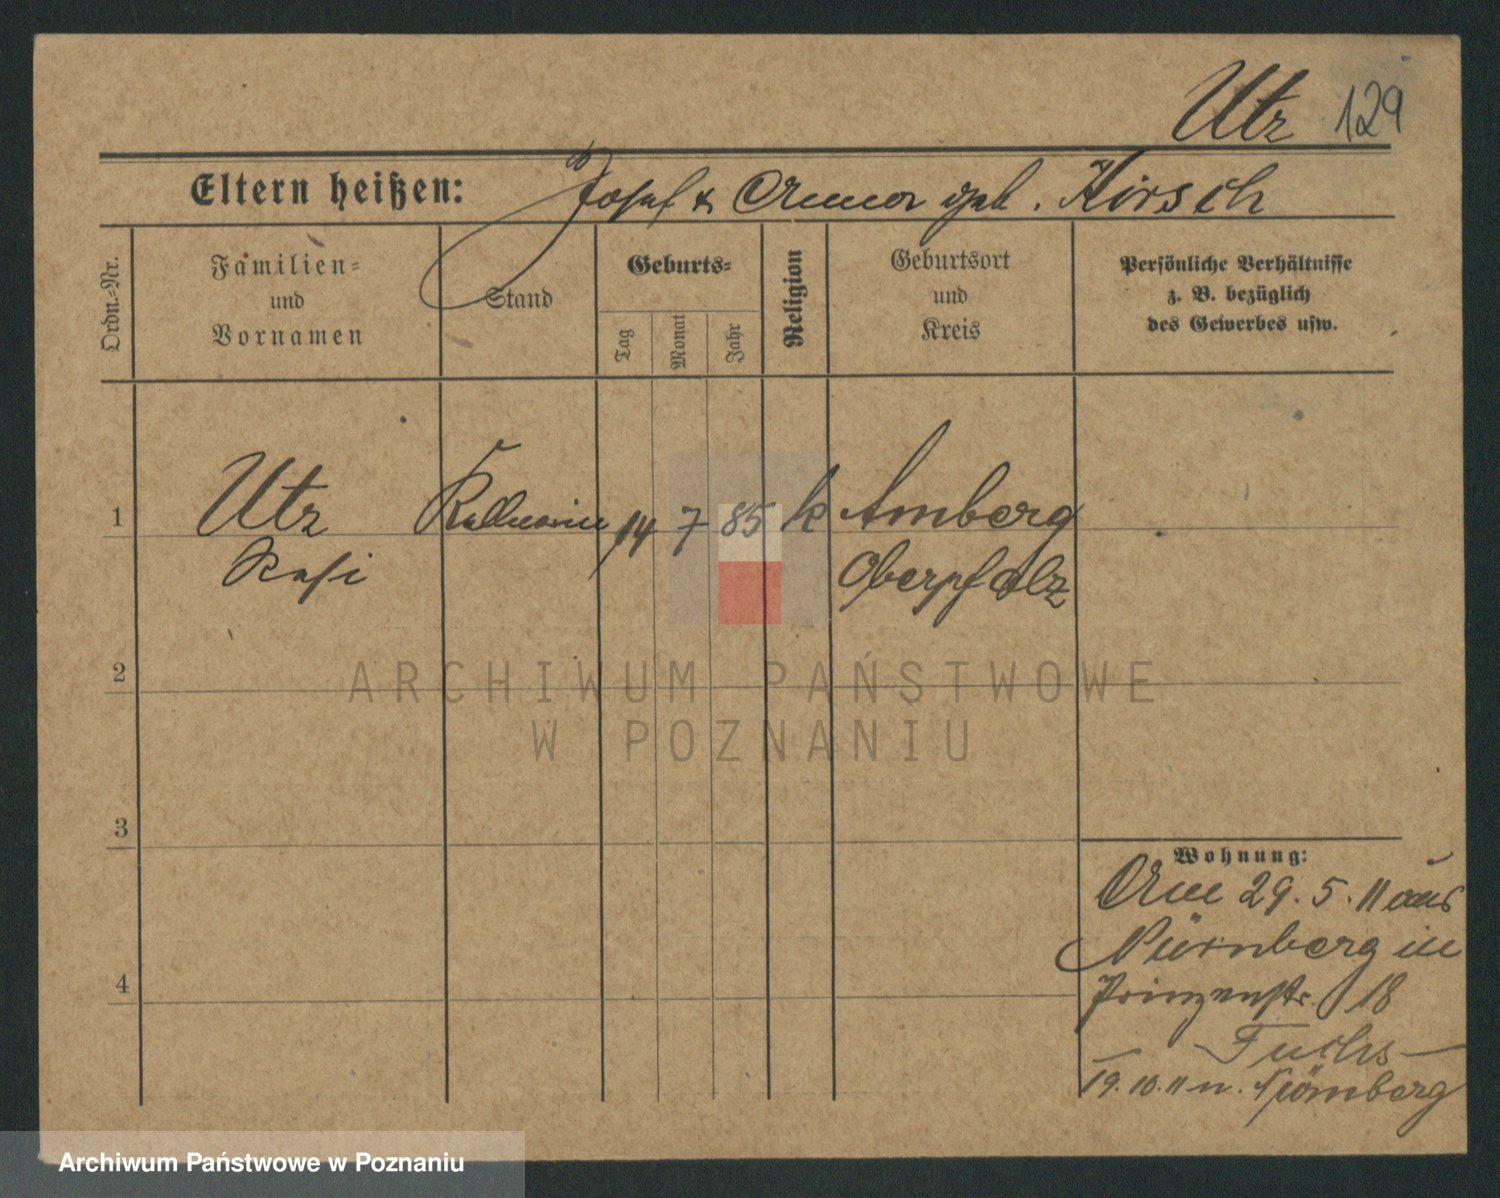 Utz 129
Eltern heißen: Josef & Anna geb. Hirsch
Ordn.-Nr.
Familien-
und
Vornamen
Stand
Geburts-
Tag
Monat
Jahr
Religion
Geburtsort
und
Kreis
Persönliche Verhältnisse
z. B. bezüglich
des Gewerbes usw.
1 Utz Kellnerin 14 7 85 k Amberg
Oberpfalz
2
3
4
Wohnung:
Am 29. 5. 11 aus
Nürnberg in
Prinzenstr. 18
Fuchs
19. 10. 11 n. Nürnberg
ARCHIWUM PAŃSTWOWE
W POZNANIU
Archiwum Państwowe w Poznaniu